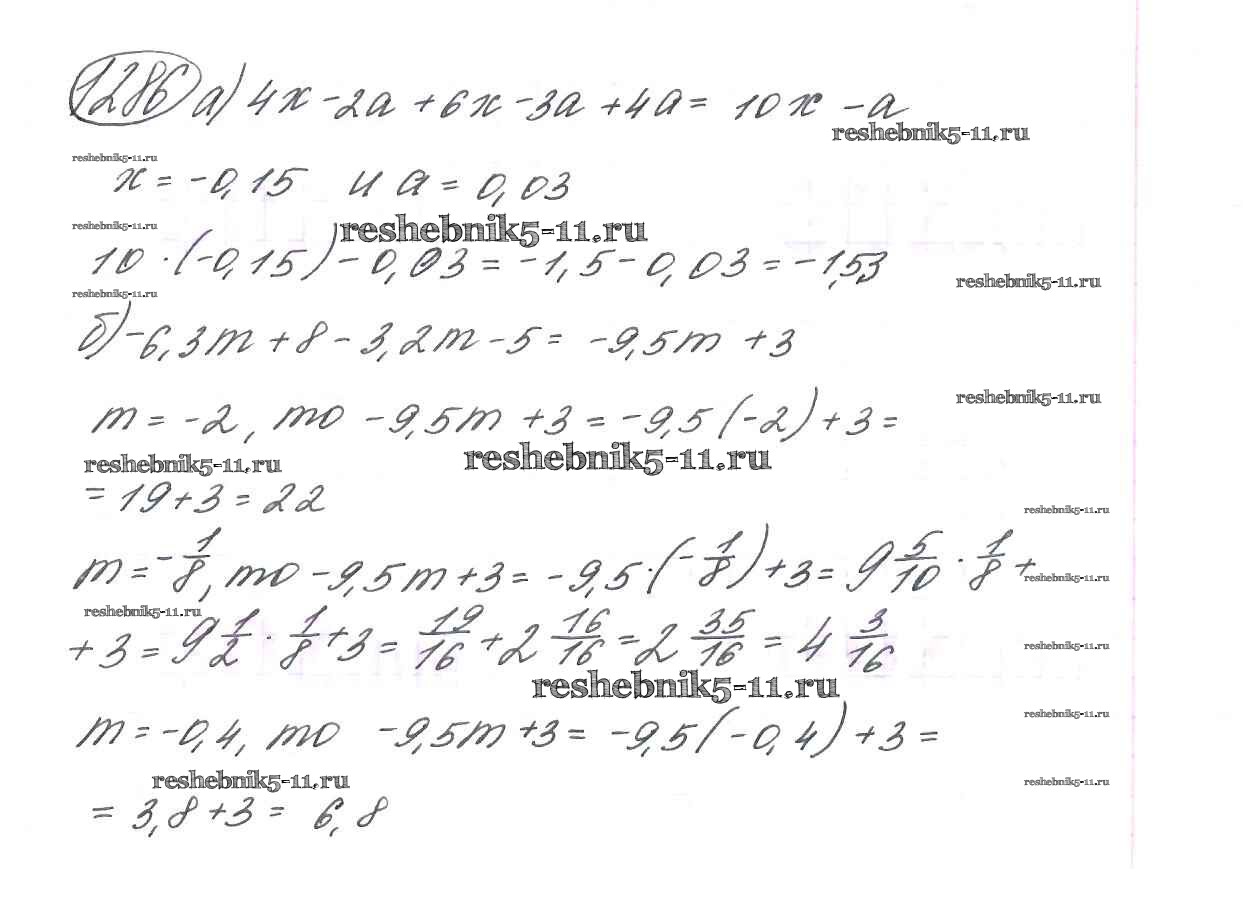 1286 а) 4x - 2a + 6x - 3a + 4a = 10x - a
reshebnik5-11.ru
reshebnik5-11.ru
x = -0,15 и a = 0,03
reshebnik5-11.ru
reshebnik5-11.ru
10 · (-0,15) - 0,03 = -1,5 - 0,03 = -1,53
reshebnik5-11.ru
reshebnik5-11.ru
б) -6,3m + 8 - 3,2m - 5 = -9,5m + 3
reshebnik5-11.ru
m = -2, то -9,5m + 3 = -9,5(-2) + 3 =
reshebnik5-11.ru
reshebnik5-11.ru
= 19 + 3 = 22
reshebnik5-11.ru
m = -1/8, то -9,5m + 3 = -9,5 · (-1/8) + 3 = 9 5/10 · 1/8 +
reshebnik5-11.ru
reshebnik5-11.ru
+ 3 = 9 1/2 · 1/8 + 3 = 19/16 + 2 16/16 = 2 35/16 = 4 3/16
reshebnik5-11.ru
reshebnik5-11.ru
reshebnik5-11.ru
m = -0,4, то -9,5m + 3 = -9,5(-0,4) + 3 =
reshebnik5-11.ru
reshebnik5-11.ru
= 3,8 + 3 = 6,8